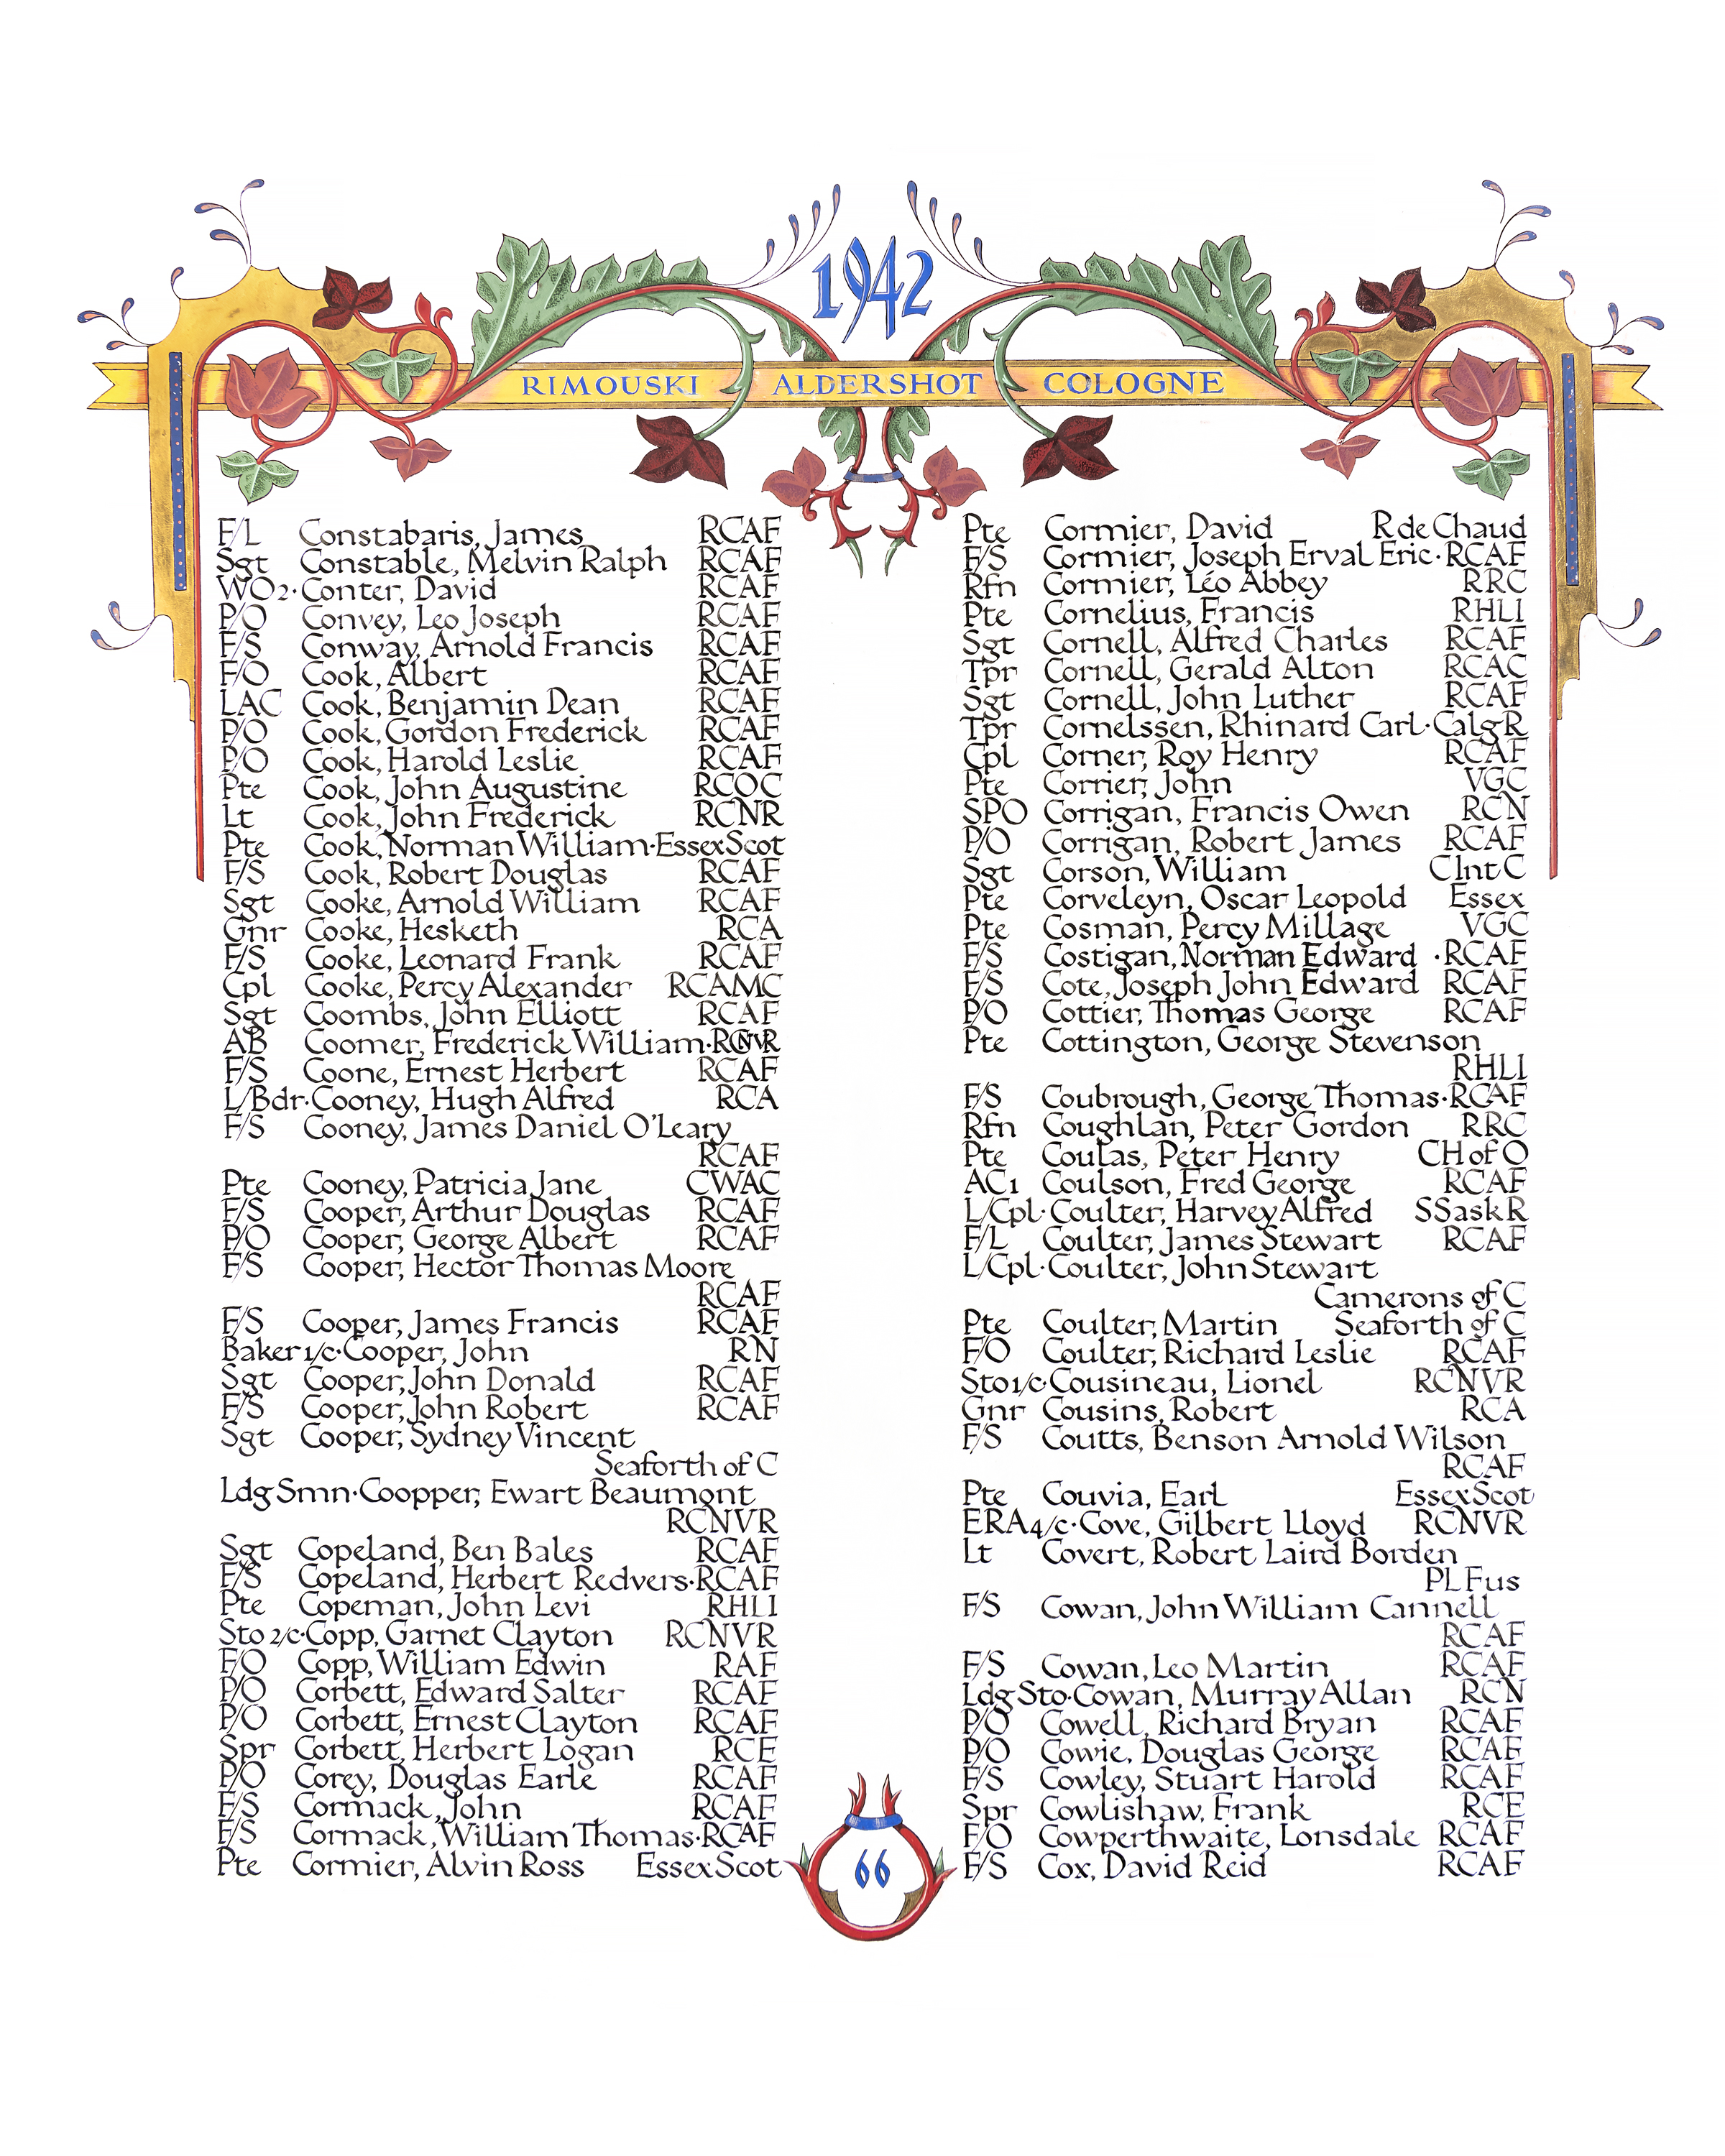 1942
RIMOUSKI ALDERSHOT COLOGNE
F/L Constabaris, James RCAF
Sgt Constable, Melvin Ralph RCAF
WO2·Conter, David RCAF
P/O Convey, Leo Joseph RCAF
F/S Conway, Arnold Francis RCAF
F/O Cook, Albert RCAF
LAC Cook, Benjamin Dean RCAF
P/O Cook, Gordon Frederick RCAF
P/O Cook, Harold Leslie RCAF
Pte Cook, John Augustine RCOC
Lt Cook, John Frederick RCNR
Pte Cook, Norman William·Essex Scot
F/S Cook, Robert Douglas RCAF
Sgt Cooke, Arnold William RCAF
Gnr Cooke, Hesketh RCA
F/S Cooke, Leonard Frank RCAF
Cpl Cooke, Percy Alexander RCAMC
Sgt Coombs, John Elliott RCAF
AB Coomer, Frederick William·RCNVR
F/S Coone, Ernest Herbert RCAF
L/Bdr·Cooney, Hugh Alfred RCA
F/S Cooney, James Daniel O'Leary
RCAF
Pte Cooney, Patricia Jane CWAC
F/S Cooper, Arthur Douglas RCAF
P/O Cooper, George Albert RCAF
F/S Cooper, Hector Thomas Moore
RCAF
F/S Cooper, James Francis RCAF
Baker 1/c·Cooper, John RN
Sgt Cooper, John Donald RCAF
F/S Cooper, John Robert RCAF
Sgt Cooper, Sydney Vincent
Seaforth of C
Ldg Smn·Coopper, Ewart Beaumont
RCNVR
Sgt Copeland, Ben Bales RCAF
F/S Copeland, Herbert Redvers·RCAF
Pte Copeman, John Levi RHLI
Sto 2/c·Copp, Garnet Clayton RCNVR
F/O Copp, William Edwin RAF
P/O Corbett, Edward Salter RCAF
P/O Corbett, Ernest Clayton RCAF
Spr Corbett, Herbert Logan RCE
P/O Corey, Douglas Earle RCAF
F/S Cormack, John RCAF
F/S Cormack, William Thomas·RCAF
Pte Cormier, Alvin Ross Essex Scot
Pte Cormier, David R de Chaud
F/S Cormier, Joseph Erval Eric·RCAF
Rfn Cormier, Léo Abbey RRC
Pte Cornelius, Francis RHLI
Sgt Cornell, Alfred Charles RCAF
Tpr Cornell, Gerald Alton RCAC
Sgt Cornell, John Luther RCAF
Tpr Cornelssen, Rhinard Carl·Calg R
Cpl Corner, Roy Henry RCAF
Pte Corrier, John VGC
SPO Corrigan, Francis Owen RCN
P/O Corrigan, Robert James RCAF
Sgt Corson, William C Int C
Pte Corveleyn, Oscar Leopold Essex
Pte Cosman, Percy Millage VGC
F/S Costigan, Norman Edward ·RCAF
F/S Cote, Joseph John Edward RCAF
P/O Cottier, Thomas George RCAF
Pte Cottington, George Stevenson
RHLI
F/S Coubrough, George Thomas·RCAF
Rfn Coughlan, Peter Gordon RRC
Pte Coulas, Peter Henry CH of O
AC1 Coulson, Fred George RCAF
L/Cpl·Coulter, Harvey Alfred SSask R
F/L Coulter, James Stewart RCAF
L/Cpl·Coulter, John Stewart
Camerons of C
Pte Coulter, Martin Seaforth of C
F/O Coulter, Richard Leslie RCAF
Sto 1/c·Cousineau, Lionel RCNVR
Gnr Cousins, Robert RCA
F/S Coutts, Benson Arnold Wilson
RCAF
Pte Couvia, Earl Essex Scot
ERA 4/c·Cove, Gilbert Lloyd RCNVR
Lt Covert, Robert Laird Borden
PL Fus
F/S Cowan, John William Cannell
RCAF
F/S Cowan, Leo Martin RCAF
Ldg Sto·Cowan, Murray Allan RCN
P/O Cowell, Richard Bryan RCAF
P/O Cowie, Douglas George RCAF
F/S Cowley, Stuart Harold RCAF
Spr Cowlishaw, Frank RCE
F/O Cowperthwaite, Lonsdale RCAF
F/S Cox, David Reid RCAF
66